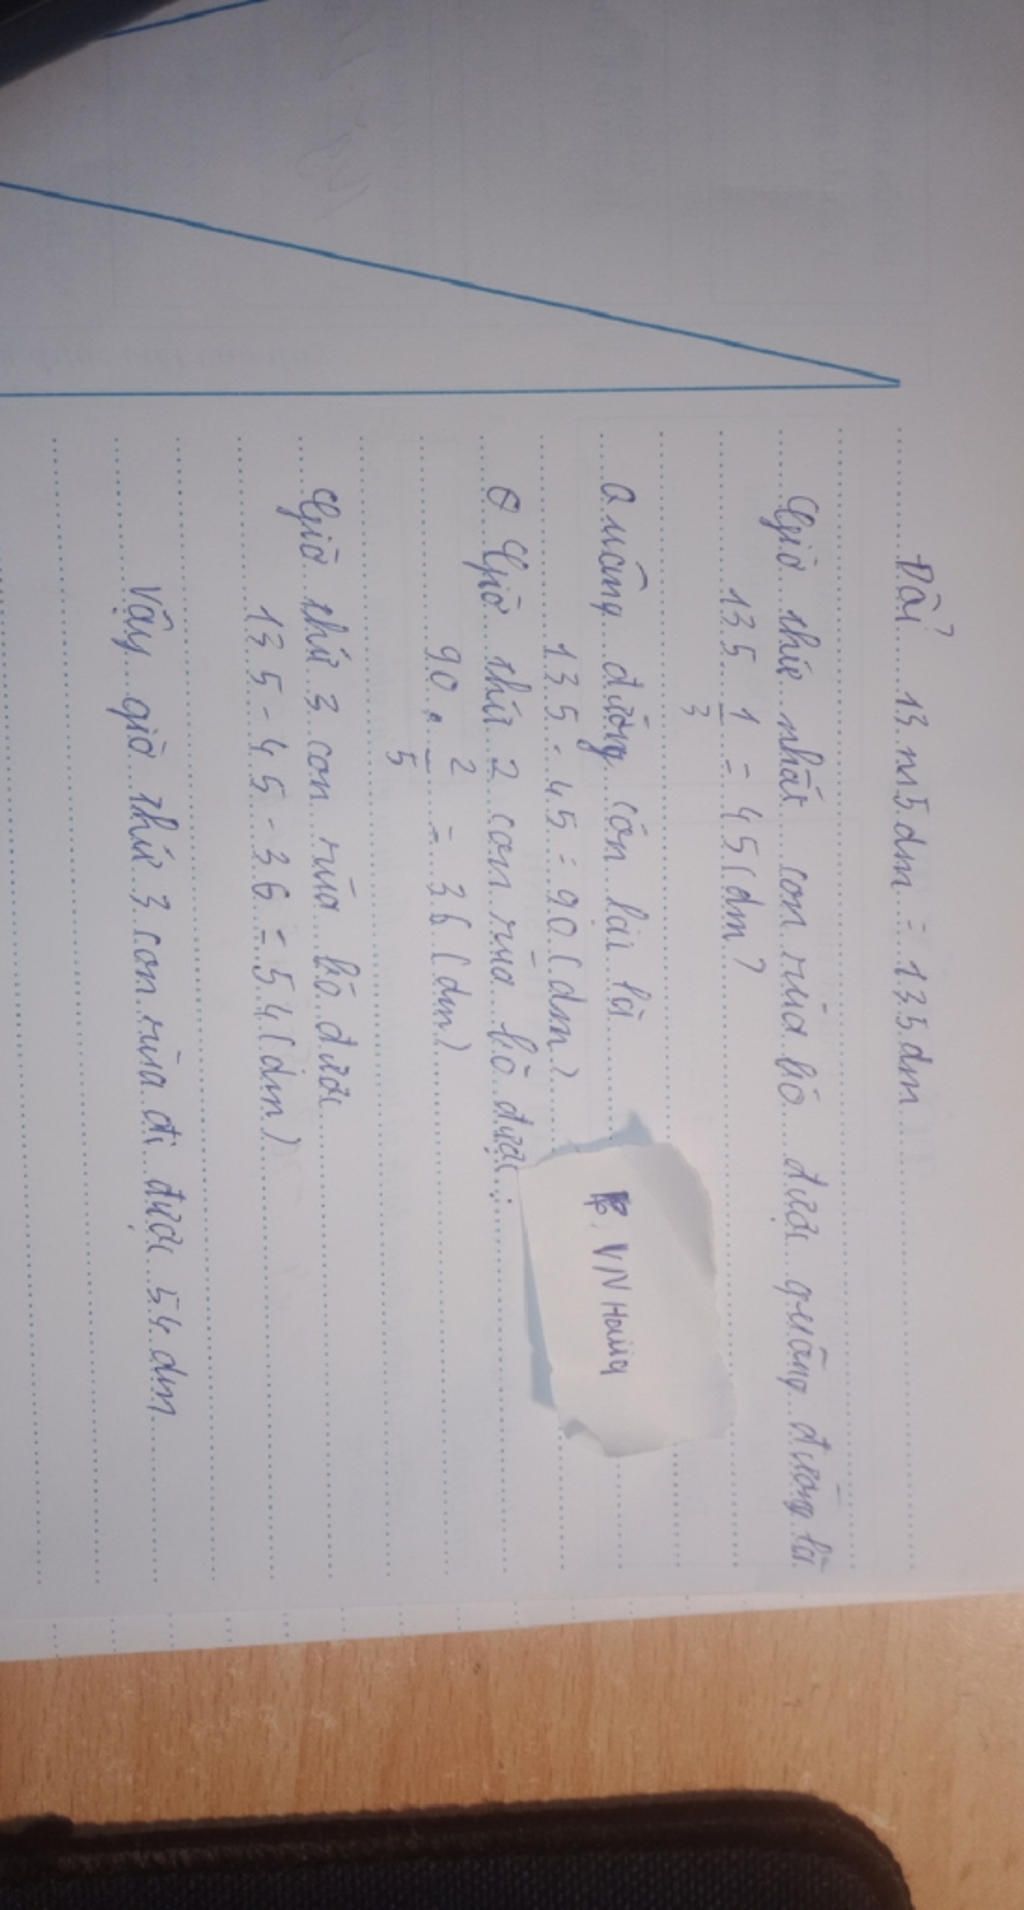 Đổi 13 m 5 dm = 135 dm
Giờ thứ nhất con rùa bò được quãng đường là
135 . 1/3 = 45 (dm)
Quãng đường còn lại là
135 - 45 = 90 (dm)
Giờ thứ 2 con rùa bò được :
90 . 2/5 = 36 (dm)
Giờ thứ 3 con rùa bò được
135 - 45 - 36 = 54 (dm)
Vậy giờ thứ 3 con rùa đi được 54 dm
VN Hoina